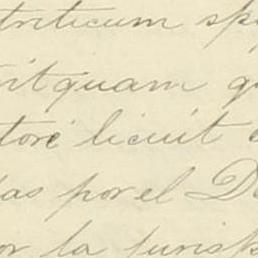 triticum sp
it quam q
tore licuit
as por el D
or la jurisp